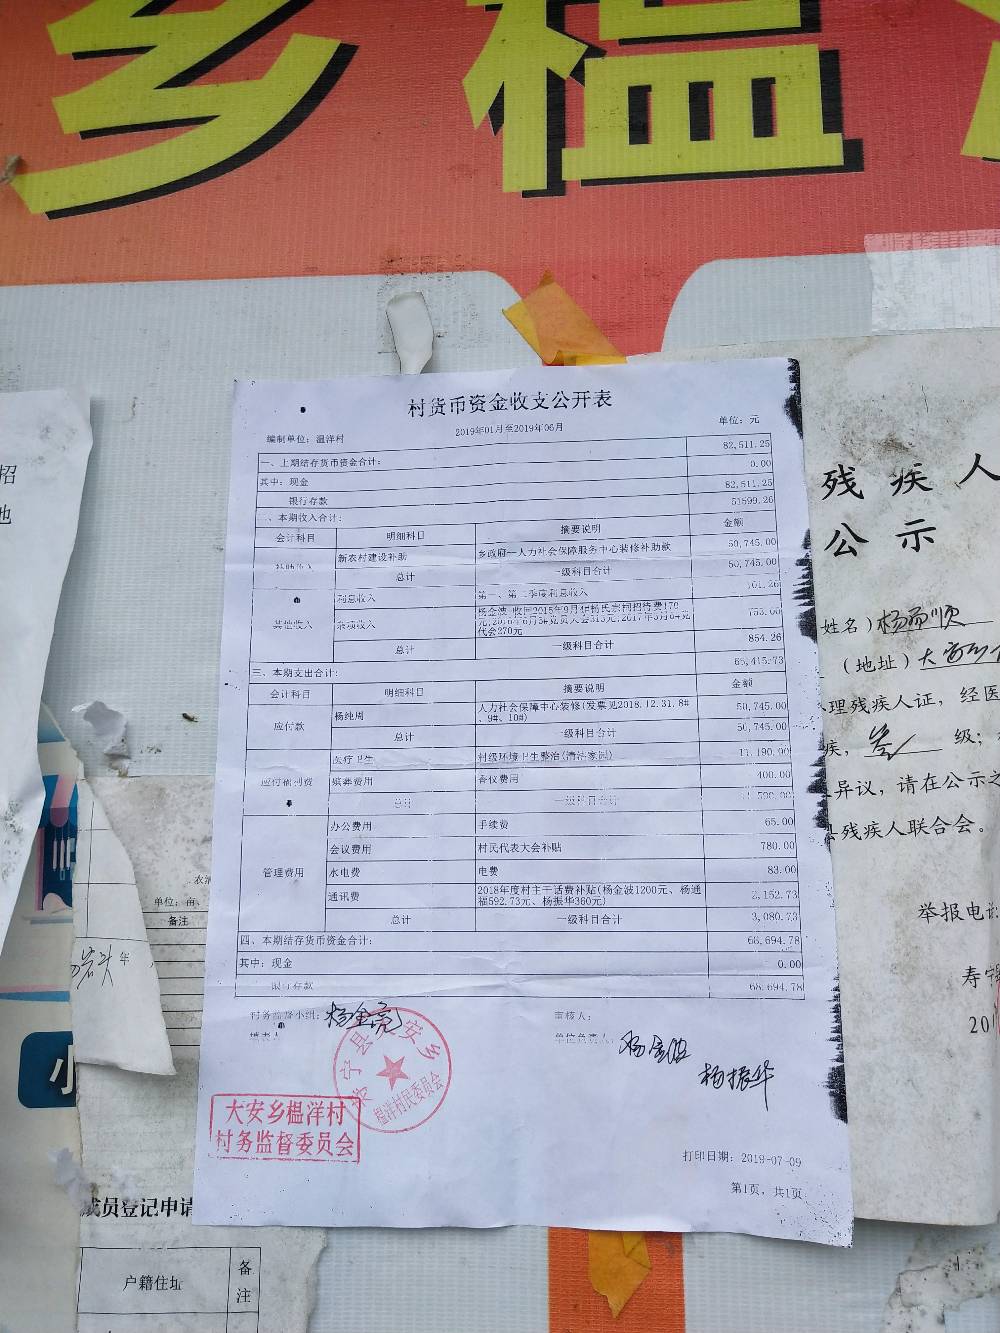 乡榅
村货币资金收支公开表
2019年01月至2019年06月
编制单位：温洋村
单位：元
一、上期结存货币资金合计： 82,511.25
其中：现金 0.00
银行存款 82,511.25
、本期收入合计： 51599.26
会计科目 明细科目 摘要说明 金额
新农村建设补助 乡政府--人力社会保障服务中心装修补助款 50,745.00
总计 一级科目合计 50,745.00
其他收入 利息收入 第一、第二季度利息收入 101.26
杂项收入 753.00
代会270元
总计 一级科目合计 854.26
三、本期支出合计： 65,415.73
会计科目 明细科目 摘要说明 金额
应付款 杨纯周 人力社会保障中心装修(发票见2018.12.31.8#、9#、10#) 50,745.00
总计 一级科目合计 50,745.00
应付福利费 医疗卫生 村级环境卫生整治(清洁家园) 11,190.00
殡葬费用 香仪费用 400.00
总计 一级科目合计
管理费用 办公费用 手续费 65.00
会议费用 村民代表大会补贴 780.00
水电费 电费 83.00
通讯费 2018年度村主干话费补贴(杨金波1200元、杨通福592.73元、杨振华360元) 2,152.73
总计 一级科目合计 3,080.73
四、本期结存货币资金合计： 68,694.78
其中：现金 0.00
银行存款 68,694.78
村务监督小组： 杨金亮
审核人：
填表人
单位负责人： 杨金波
杨振华
寿宁县大安乡
榅洋村民委员会
大安乡榅洋村
村务监督委员会
打印日期：2019-07-09
第1页，共1页
残疾人
公示
姓名）杨丽顺
（地址）大安乡
理残疾人证，经医
疾，叁 级；
异议，请在公示之
县残疾人联合会。
举报电
寿宁
201
招
地
单位：亩、
备注
年
小
成员登记申请
户籍住址 备注